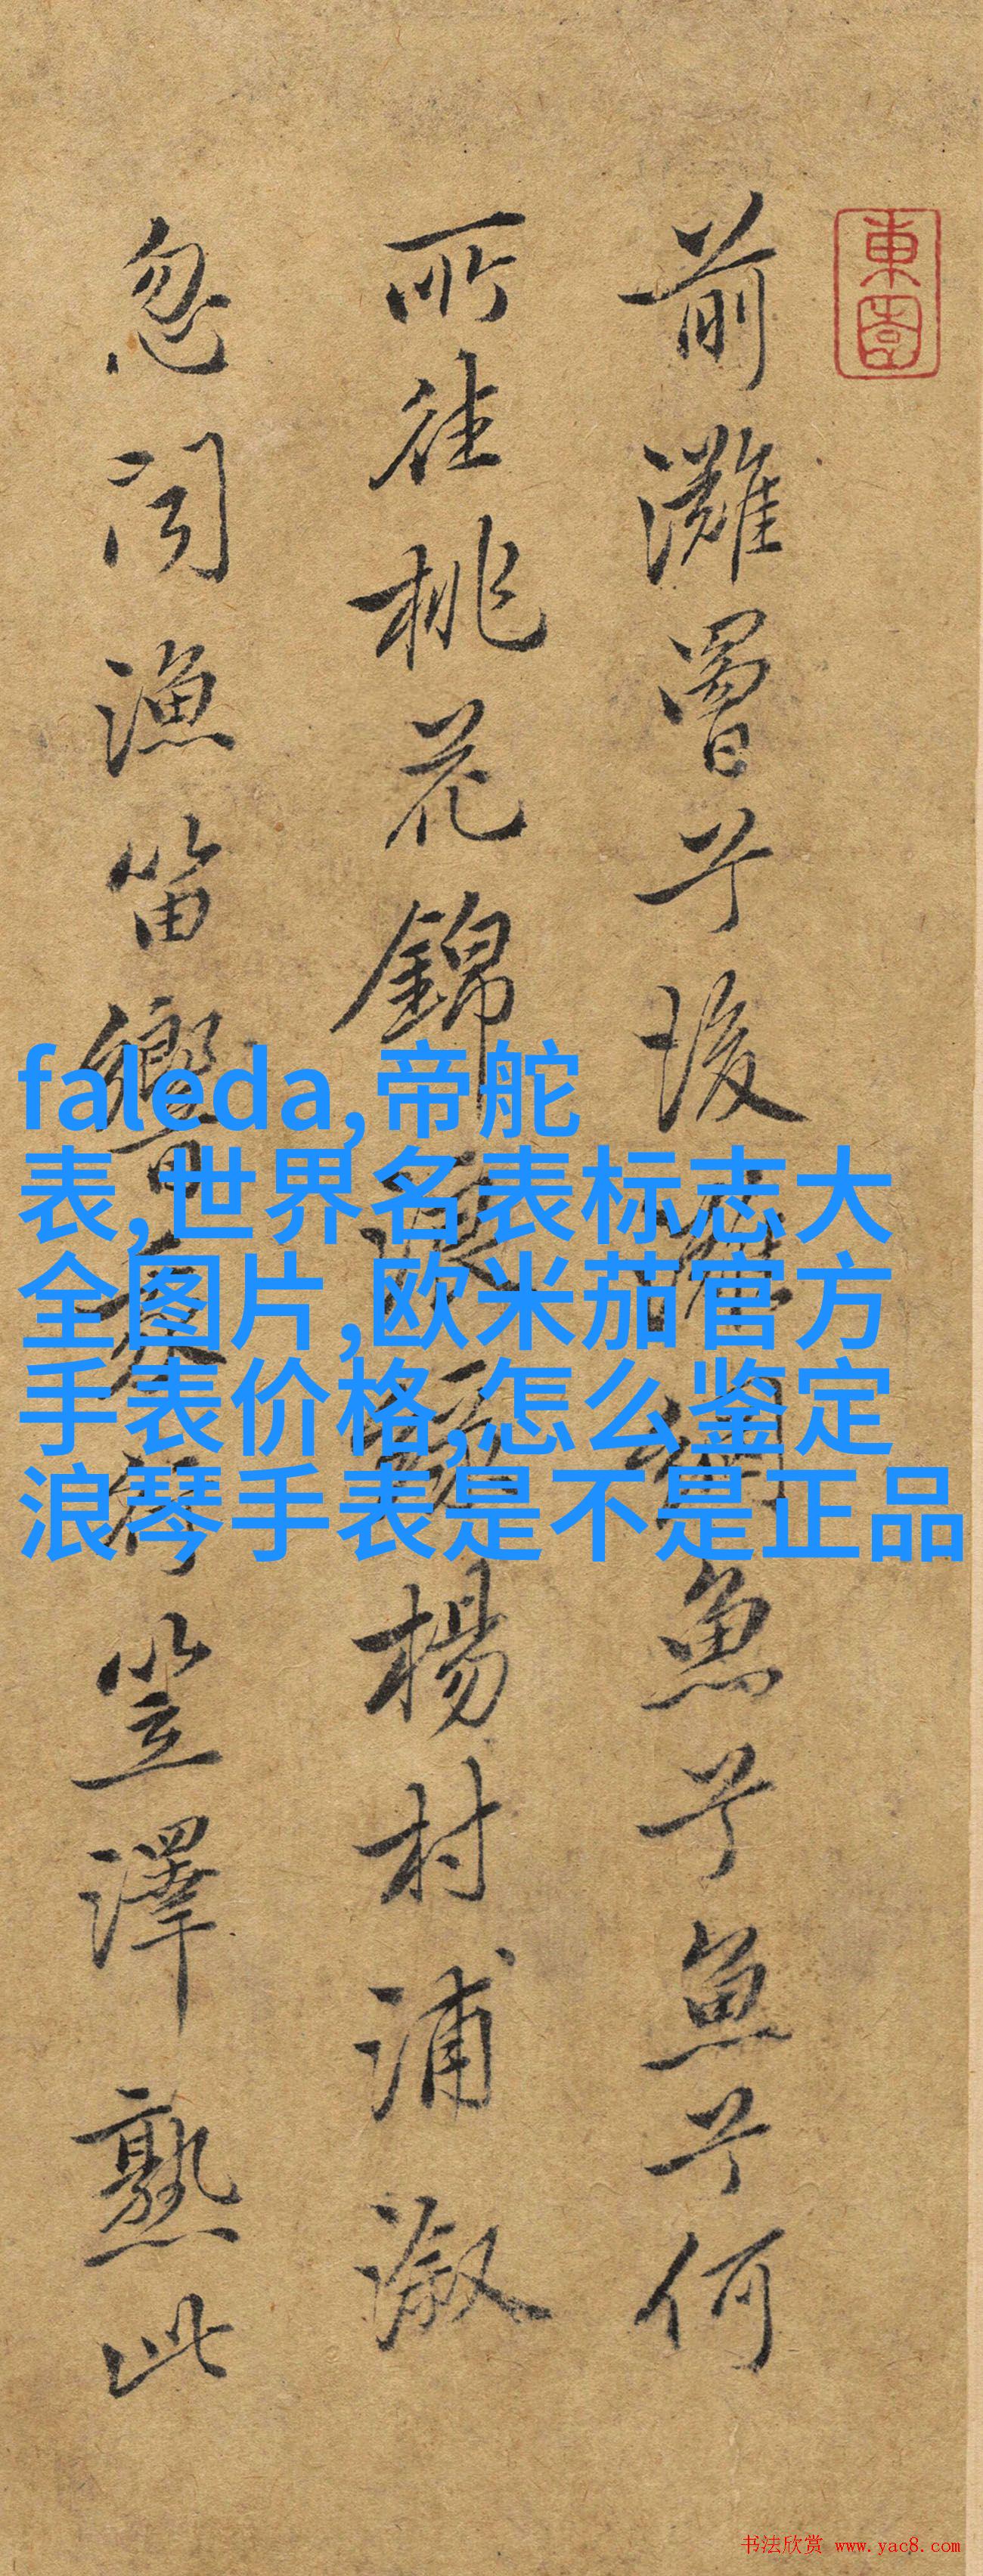 東園
前灘罾兮後
魚兮魚兮何
所往桃花錦
楊村浦溆
忽聞漁笛響
笠澤熟此
faleda,帝舵
表,世界名表标志大
全图片,欧米茄官方
手表价格,怎么鉴定
浪琴手表是不是正品
书法欣赏 www.yac8.com